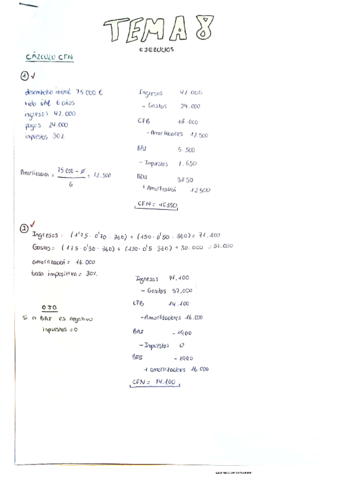 TEMA 8
EJERCICIOS
CÁLCULO CFN
1) ✓
desembolso inicial 75.000 €
vida útil 6 años
ingresos 42.000
pagos 24.000
impuestos 30%
Amortización = 75.000 - 0 / 6 = 12.500
Ingresos 42.000
- Gastos 24.000
CFB 18.000
- Amortizaciones 12.500
BAI 5.500
- Impuestos 1.650
BDI 3850
+ Amortizació 12500
CFN = 16350
2) ✓
Ingresos = (1'75 · 0'70 · 360) + (150 · 0'50 · 360) = 71.100
Gastos = (175 · 0'30 · 360) + (150 · 0'5 · 360) + 30.000 = 57.000
amortització = 16.000
tasa impositiva = 30%
Ingresos 71.100
- Gastos 57,000
CFB 14.100
- Amortizaciones 16.000
BAI - 1900
- Impuestos 0
BDI - 1900
+ amortizaciones 16.000
CFN = 14.100
OJO
Si el BAI es negativo
impuestos = 0